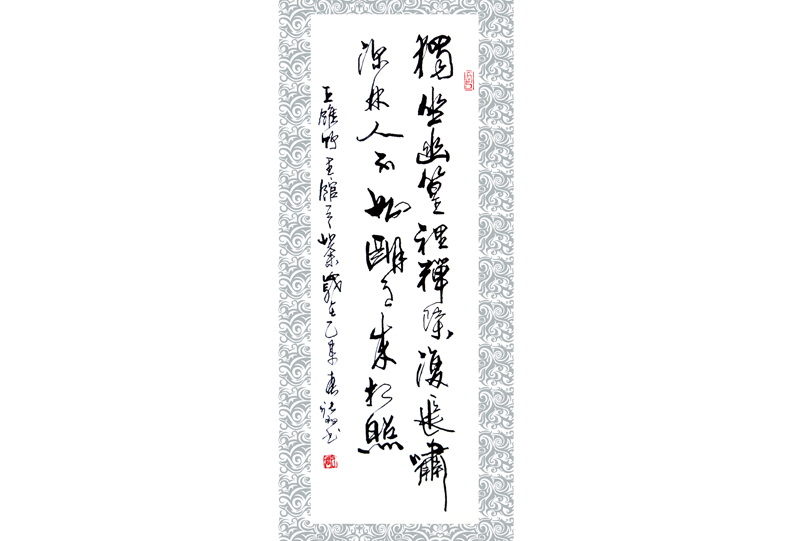 獨坐幽篁裡彈琴復長嘯
深林人不知明月來相照
王維竹里館 歲在乙未春 書